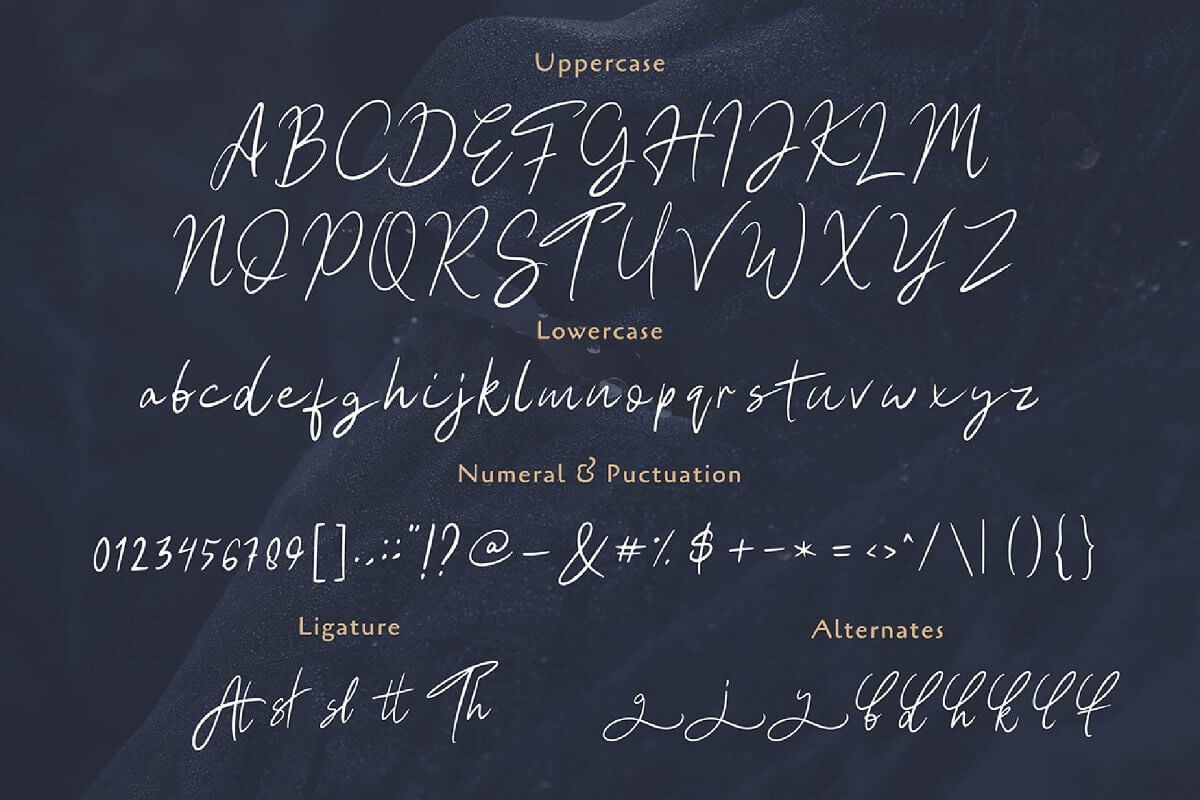 Uppercase
ABCDEFGHIJKLM
NOPQRSTUVWXYZ
Lowercase
abcdefghijklmnopqrstuvwxyz
Numeral & Puctuation
0123456789[].,:;"!?@–&#%$+-*=<>^/\|(){}
Ligature
At st sl tt Th
Alternates
g j y b d h k l t